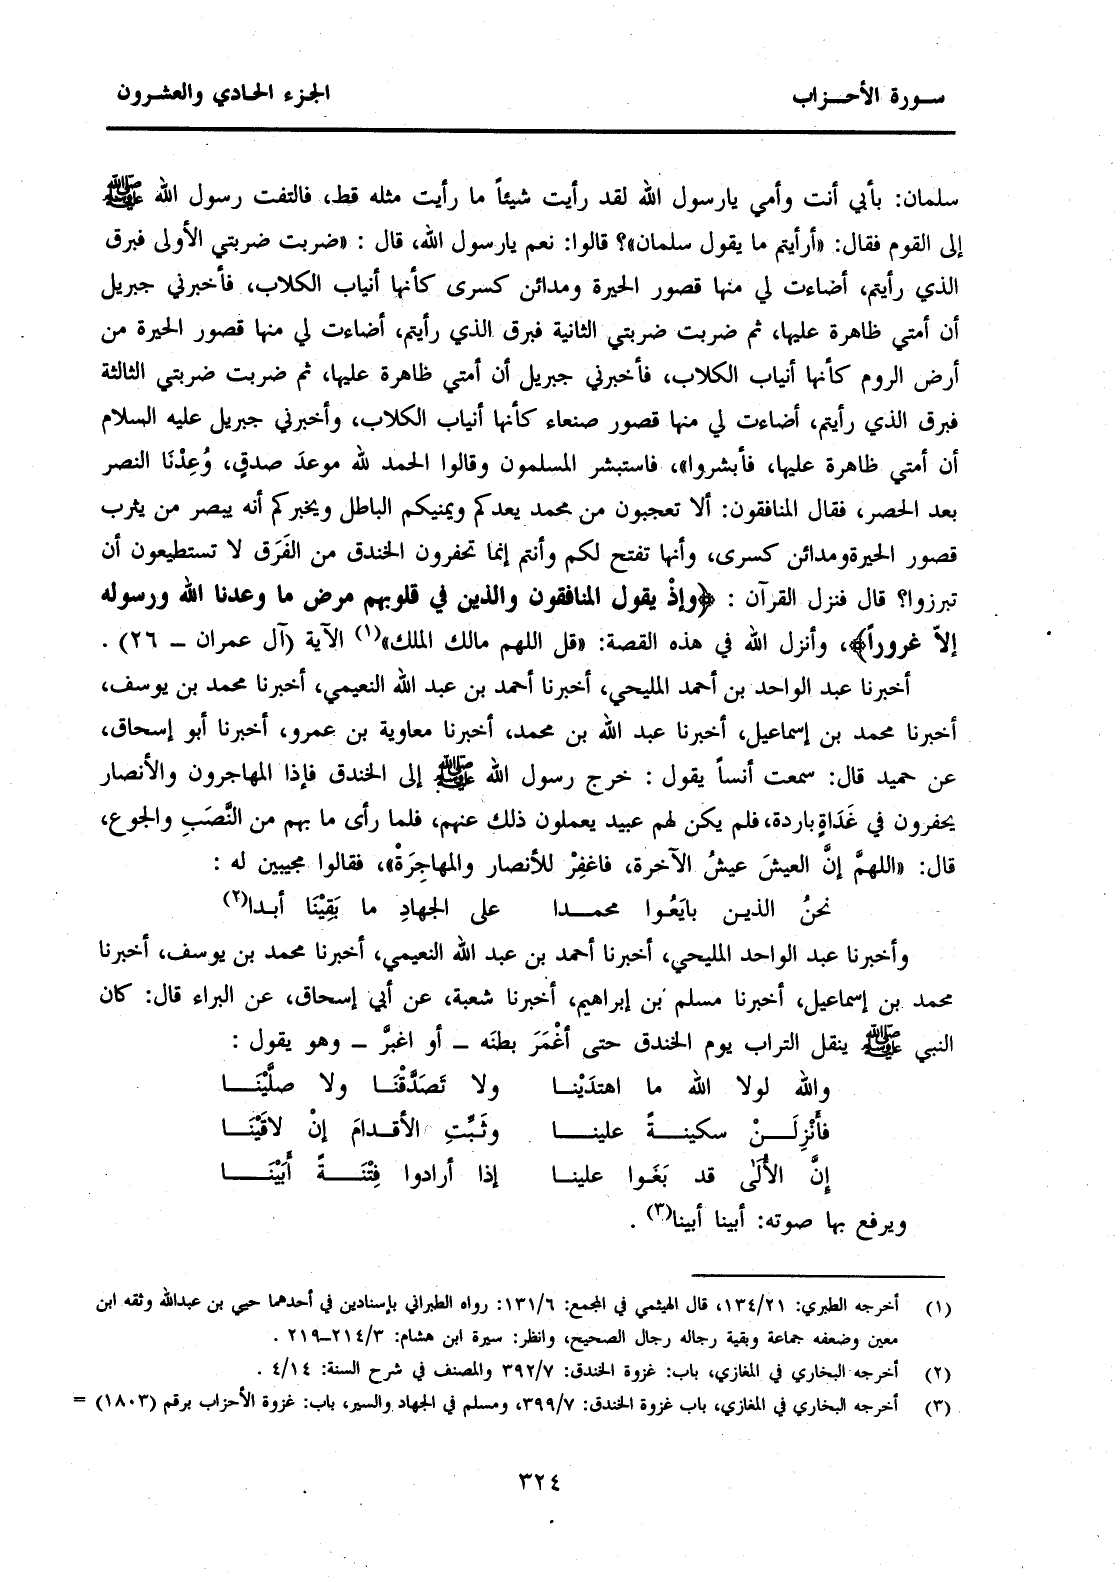 سورة الأحزاب
الجزء الحادي والعشرون
سلمان: بأبي أنت وأمي يارسول الله لقد رأيت شيئاً ما رأيت مثله قط، فالتفت رسول الله ﷺ
إلى القوم فقال: «أرأيتم ما يقول سلمان»؟ قالوا: نعم يارسول الله، قال : «ضربت ضربتي الأولى فبرق
الذي رأيتم، أضاءت لي منها قصور الحيرة ومدائن كسرى كأنها أنياب الكلاب، فأخبرني جبريل
أن أمتي ظاهرة عليها، ثم ضربت ضربتي الثانية فبرق الذي رأيتم، أضاءت لي منها قصور الحيرة من
أرض الروم كأنها أنياب الكلاب، فأخبرني جبريل أن أمتي ظاهرة عليها، ثم ضربت ضربتي الثالثة
فبرق الذي رأيتم، أضاءت لي منها قصور صنعاء كأنها أنياب الكلاب، وأخبرني جبريل عليه السلام
أن أمتي ظاهرة عليها، فأبشروا»، فاستبشر المسلمون وقالوا الحمد لله موعدَ صدقٍ، وُعِدْنَا النصر
بعد الحصر، فقال المنافقون: ألا تعجبون من محمد يعدكم ويمنيكم الباطل ويخبركم أنه يبصر من يثرب
قصور الحيرةومدائن كسرى، وأنها تفتح لكم وأنتم إنما تحفرون الخندق من الفَرَق لا تستطيعون أن
تبرزوا؟ قال فنزل القرآن : ﴿وإذْ يقول المنافقون والذين في قلوبهم مرض ما وعدنا الله ورسوله
إلاّ غروراً﴾، وأنزل الله في هذه القصة: «قل اللهم مالك الملك»(١) الآية (آل عمران ــ ٢٦) .
أخبرنا عبد الواحد بن أحمد المليحي، أخبرنا أحمد بن عبد الله النعيمي، أخبرنا محمد بن يوسف،
أخبرنا محمد بن إسماعيل، أخبرنا عبد الله بن محمد، أخبرنا معاوية بن عمرو، أخبرنا أبو إسحاق،
عن حميد قال: سمعت أنساً يقول : خرج رسول الله ﷺ إلى الخندق فإذا المهاجرون والأنصار
يحفرون في غَدَاةٍ باردة، فلم يكن لهم عبيد يعملون ذلك عنهم، فلما رأى ما بهم من النَّصَبِ والجوع،
قال: «اللهمَّ إنَّ العيشَ عيشُ الآخرة، فاغفِرْ للأنصار والمهاجِرَةْ»، فقالوا مجيبين له :
نحنُ الذين بايَعُوا محمدا على الجهادِ ما بَقِيْنَا أبدا(٢)
وأخبرنا عبد الواحد المليحي، أخبرنا أحمد بن عبد الله النعيمي، أخبرنا محمد بن يوسف، أخبرنا
محمد بن إسماعيل، أخبرنا مسلم بن إبراهيم، أخبرنا شعبة، عن أبي إسحاق، عن البراء قال: كان
النبي ﷺ ينقل التراب يوم الخندق حتى أغْمَرَ بطنَه ــ أو اغبرَّ ــ وهو يقول :
والله لولا الله ما اهتدَيْنا ولا تَصَدَّقْنَا ولا صلَّيْنَا
فأَنْزِلَنْ سكينةً علينا وثَبِّتِ الأقدامَ إنْ لاقَيْنَا
إنَّ الأُلَىٰ قد بَغَوا علينا إذا أرادوا فِتْنَةً أَبَيْنَا
ويرفع بها صوته: أبينا أبينا(٣) .
(١) أخرجه الطبري: ١٣٤/٢١، قال الهيثمي في المجمع: ١٣١/٦: رواه الطبراني بإسنادين في أحدهما حيي بن عبدالله وثقه ابن
معين وضعفه جماعة وبقية رجاله رجال الصحيح، وانظر: سيرة ابن هشام: ٢١٤/٣ــ٢١٩ .
(٢) أخرجه البخاري في المغازي، باب: غزوة الخندق: ٣٩٢/٧ والمصنف في شرح السنة: ٤/١٤ .
(٣) أخرجه البخاري في المغازي، باب غزوة الخندق: ٣٩٩/٧، ومسلم في الجهاد والسير، باب: غزوة الأحزاب برقم (١٨٠٣) =
٣٢٤